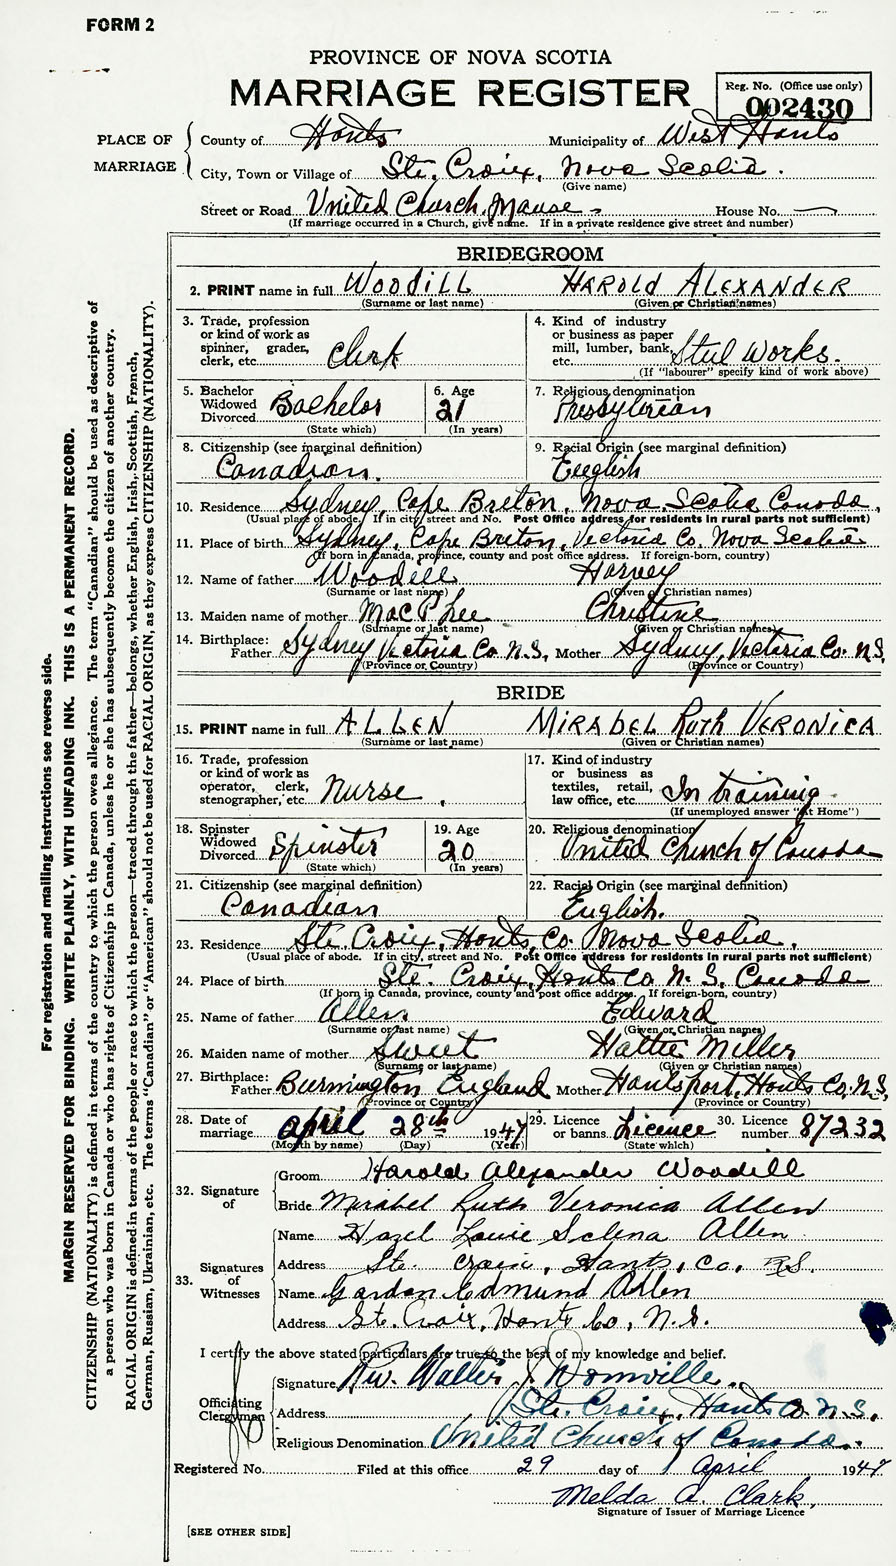 FORM 2
PROVINCE OF NOVA SCOTIA
MARRIAGE REGISTER
Reg. No. (Office use only)
002430
PLACE OF MARRIAGE
County of Hants Municipality of West Hants
City, Town or Village of Ste. Croix, Nova Scotia.
(Give name)
Street or Road United Church Manse House No.
(If marriage occurred in a Church, give name. If in a private residence give street and number)
BRIDEGROOM
2. PRINT name in full WOODILL HAROLD ALEXANDER
(Surname or last name) (Given or Christian names)
3. Trade, profession or kind of work as spinner, grader, clerk, etc. Clerk
4. Kind of industry or business as paper mill, lumber, bank, etc. Steel Works.
(If "labourer" specify kind of work above)
5. Bachelor Widowed Divorced Bachelor
(State which)
6. Age 21
(In years)
7. Religious denomination Presbyterian
8. Citizenship (see marginal definition) Canadian.
9. Racial Origin (see marginal definition) English
10. Residence Sydney, Cape Breton, Nova Scotia Canada,
(Usual place of abode. If in city, street and No. Post Office address for residents in rural parts not sufficient)
11. Place of birth Sydney, Cape Breton, Victoria Co. Nova Scotia
(If born in Canada, province, county and post office address. If foreign-born, country)
12. Name of father Woodill Harvey
(Surname or last name) (Given or Christian names)
13. Maiden name of mother MacPhee Christine
(Surname or last name) (Given or Christian names)
14. Birthplace: Father Sydney Victoria Co. N.S, Mother Sydney, Victoria Co. N.S,
(Province or Country) (Province or Country)
BRIDE
15. PRINT name in full ALLEN MIRABEL RUTH VERONICA
(Surname or last name) (Given or Christian names)
16. Trade, profession or kind of work as operator, clerk, stenographer, etc. Nurse,
17. Kind of industry or business as textiles, retail, law office, etc. In training
(If unemployed answer "At Home")
18. Spinster Widowed Divorced Spinster
(State which)
19. Age 20
(In years)
20. Religious denomination United Church of Canada
21. Citizenship (see marginal definition) Canadian
22. Racial Origin (see marginal definition) English.
23. Residence Ste. Croix, Hants, Co. Nova Scotia.
(Usual place of abode. If in city, street and No. Post Office address for residents in rural parts not sufficient)
24. Place of birth Ste. Croix, Hants Co N. S, Canada
(If born in Canada, province, county and post office address. If foreign-born, country)
25. Name of father Allen Edward
(Surname or last name) (Given or Christian names)
26. Maiden name of mother Sweet Hattie Miller
(Surname or last name) (Given or Christian names)
27. Birthplace: Father Burmington England Mother Hantsport, Hants Co. N.S,
(Province or Country) (Province or Country)
28. Date of marriage April 28th 1947
(Month by name) (Day) (Year)
29. Licence or banns Licence
(State which)
30. Licence number 87232
32. Signature of
Groom Harold Alexander Woodill
Bride Mirabel Ruth Veronica Allen
33. Signatures of Witnesses
Name Hazel Louise Selena Allen
Address Ste. Croix, Hants, Co, N.S.
Name Gordon Edmund Allen
Address Ste. Croix, Hants Co, N.S.
I certify the above stated particulars are true to the best of my knowledge and belief.
Officiating Clergyman
Signature Rev. Walter J. Domville.
Address Ste. Croix, Hants Co. N.S.
Religious Denomination United Church of Canada.
Registered No. Filed at this office 29 day of April 1947
Melda A. Clark,
Signature of Issuer of Marriage Licence
[SEE OTHER SIDE]
For registration and mailing instructions see reverse side.
MARGIN RESERVED FOR BINDING. WRITE PLAINLY, WITH UNFADING INK. THIS IS A PERMANENT RECORD.
CITIZENSHIP (NATIONALITY) is defined in terms of the country to which the person owes allegiance. The term "Canadian" should be used as descriptive of
a person who was born in Canada or who has rights of Citizenship in Canada, unless he or she has subsequently become the citizen of another country.
RACIAL ORIGIN is defined in terms of the people or race to which the person—traced through the father—belongs, whether English, Irish, Scottish, French,
German, Russian, Ukrainian, etc. The terms "Canadian" or "American" should not be used for RACIAL ORIGIN, as they express CITIZENSHIP (NATIONALITY).